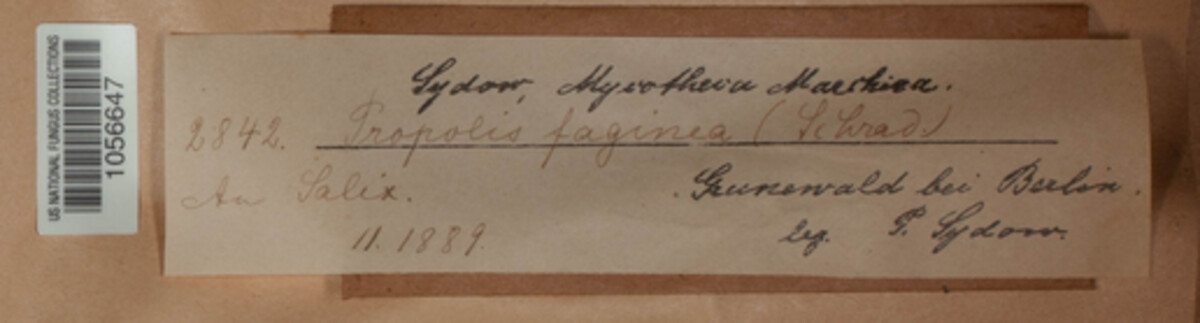 US NATIONAL FUNGUS COLLECTIONS
1056647
Sydow, Mycotheca Marchica.
2842. Propolis faginea (Schrad.)
An Salix. Grunewald bei Berlin.
11. 1889. leg. P. Sydow.